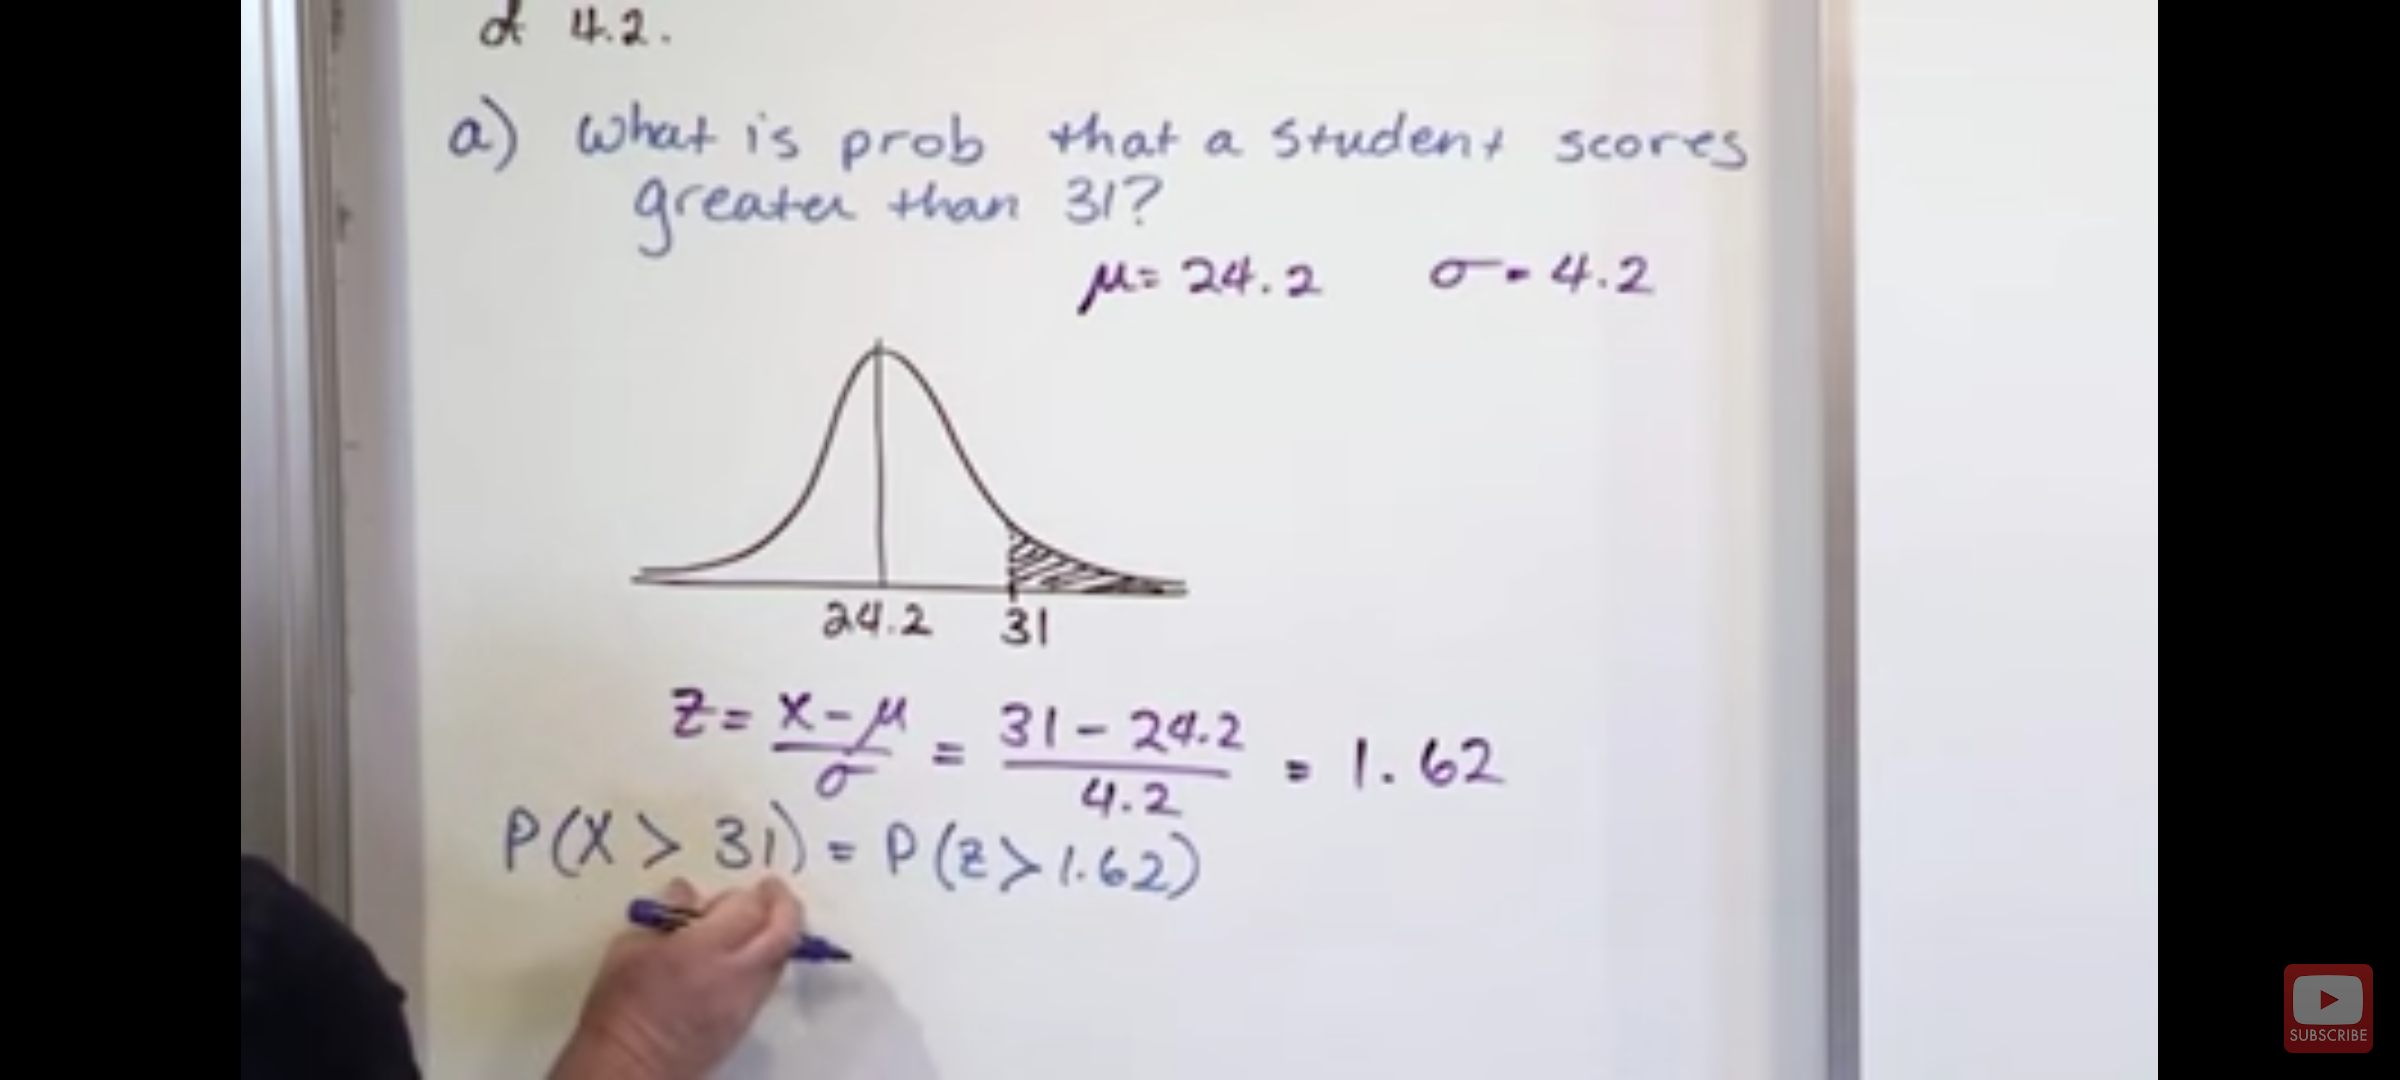 of 4.2.
a) What is prob that a student scores
greater than 31?
μ= 24.2 σ= 4.2
24.2 31
z= x-μ/σ = 31-24.2/4.2 = 1.62
P(X > 31) = P(z > 1.62)
SUBSCRIBE